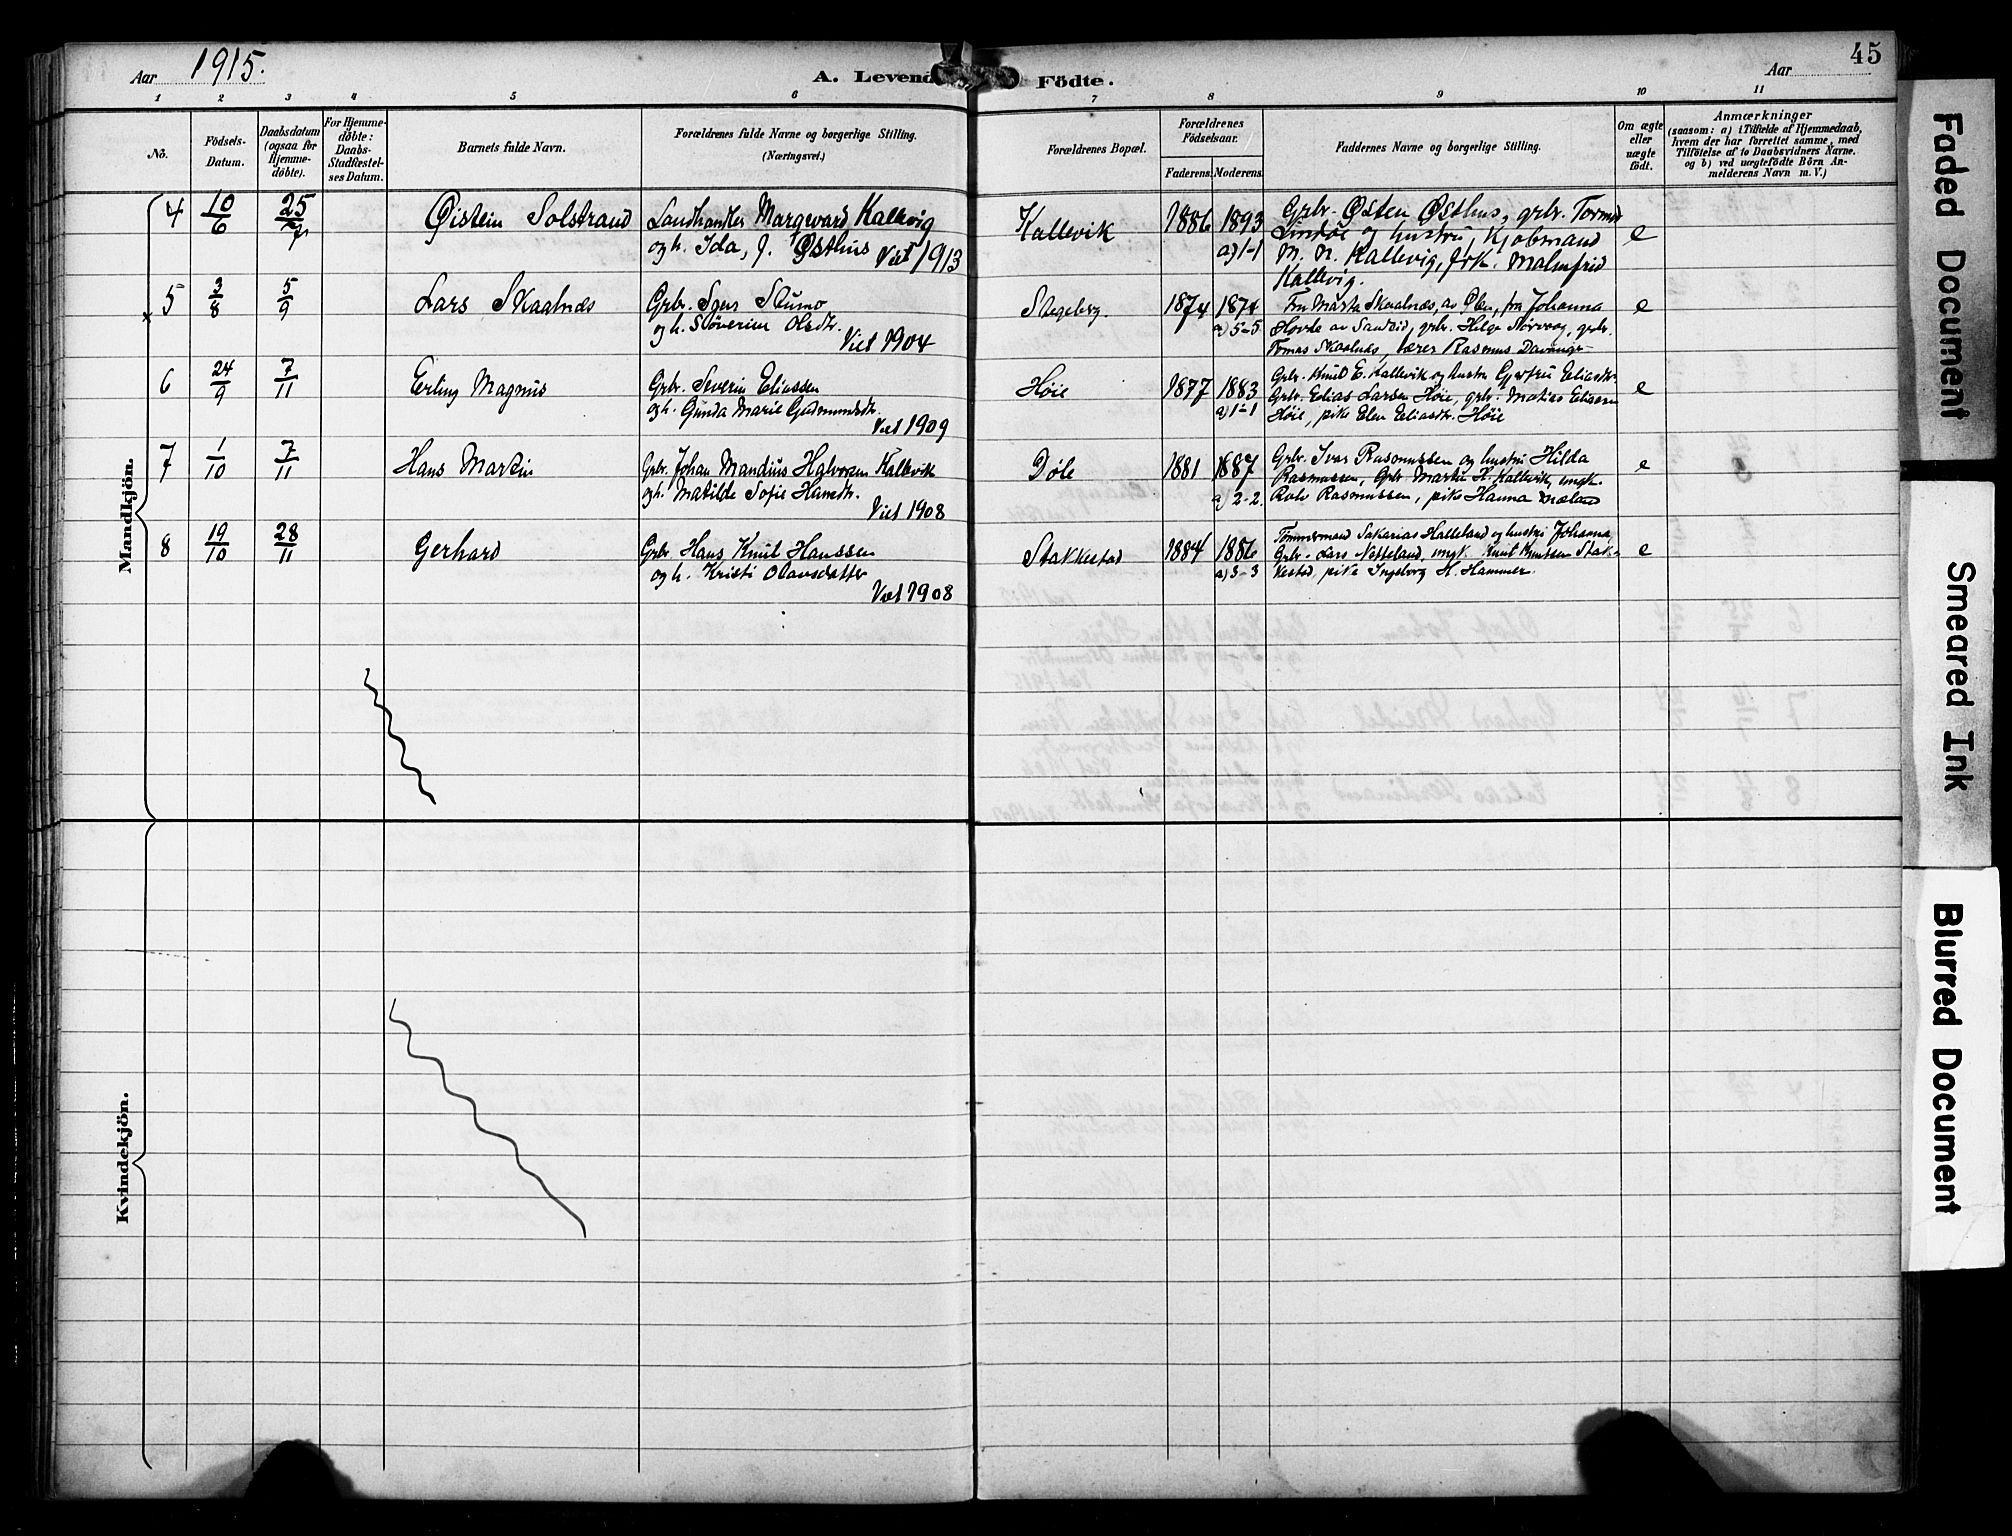 45
Aar 1915.
A. Levend Födte.
Aar
1 2 3 4 5 6 7 8 9 10 11
No.
Födsels-Datum.
Daabsdatum (ogsaa for Hjemme-döbte).
For Hjemme-döbte: Daabs-Stadfæstel-ses Datum.
Barnets fulde Navn.
Forældrenes fulde Navne og borgerlige Stilling.
(Næringsvei.)
Forældrenes Bopæl.
Forældrenes Födselsaar.
Faderens. Moderens.
Faddernes Navne og borgerlige Stilling.
Om ægte eller uægte födt.
Anmærkninger
(saasom: a) i Tilfælde af Hjemmedaab,
hvem der har forrettet samme, med
Tilföielse af to Daabsvidners Navne.
og b) ved uægtefödte Börn An-
melderens Navn m. V.)
Mandkjön.
4 10/6 25/7 Øistein Solstrand
Landhandler Margevard Kallevig
og h. Ida, f. Østhus Viet 1913
Kallevik 1886 1893
a) 1-1
Grbr. Østen Østhus, grbr. Tormod
Lindøe og hustru, Kjøbmand
M. N. Kallevig, frk. Malmfrid
Kallevig.
e
5 3/8 5/9 Lars Skaalnæs
Grbr. Sjur Stumo
og h. Støverine Olsdtr.
Viet 1904
Stegeberg. 1874 1874
a) 5-5
Fru Marta Skaalnæs, av Ølen, fru Johanna
Hovda av Sandeid, grbr. Helge Nørvaag, grbr.
Tomas Skaalnæs, lærer Rasmus Davanger
e
6 24/9 7/11 Erling Magnus
Grbr. Severin Eliassen
og h. Gunda Marie Gudmundsdtr.
Viet 1909
Høie 1877 1883
a) 1-1
Grbr. Knut E. Kallevik og hustru Gjertru Eliasdtr.
Grbr. Elias Larsen Høie, grbr. Matias Eliassen
Høie, pike Elen Eliasdtr. Høie
e
7 1/10 7/11 Hans Martin
Grbr. Johan Mandius Halvorsen Kallevik
og h. Matilde Sofie Hansdtr.
Viet 1908
Døle 1881 1887
a) 2-2.
Grbr. Ivar Rasmussen og hustru Hilda
Rasmussen, Grbr Martin H. Kallevik, ungk.
Rolv Rasmussen, pike Hanna Mæland
e
8 19/10 28/11 Gerhard
Grbr Hans Knut Hanssen
og h. Kristi Olavsdatter
Viet 1908
Stakkestad 1884 1886
a) 3-3
Tømmermand Sakarias Halleland og hustru Johanna,
Grbr. Lars Nesseland, ungk. Knut Knutsen Stak-
kestad, pike Ingeborg H. Hammer.
e
Kvindekjön.
Faded Document
Smeared Ink
Blurred Document